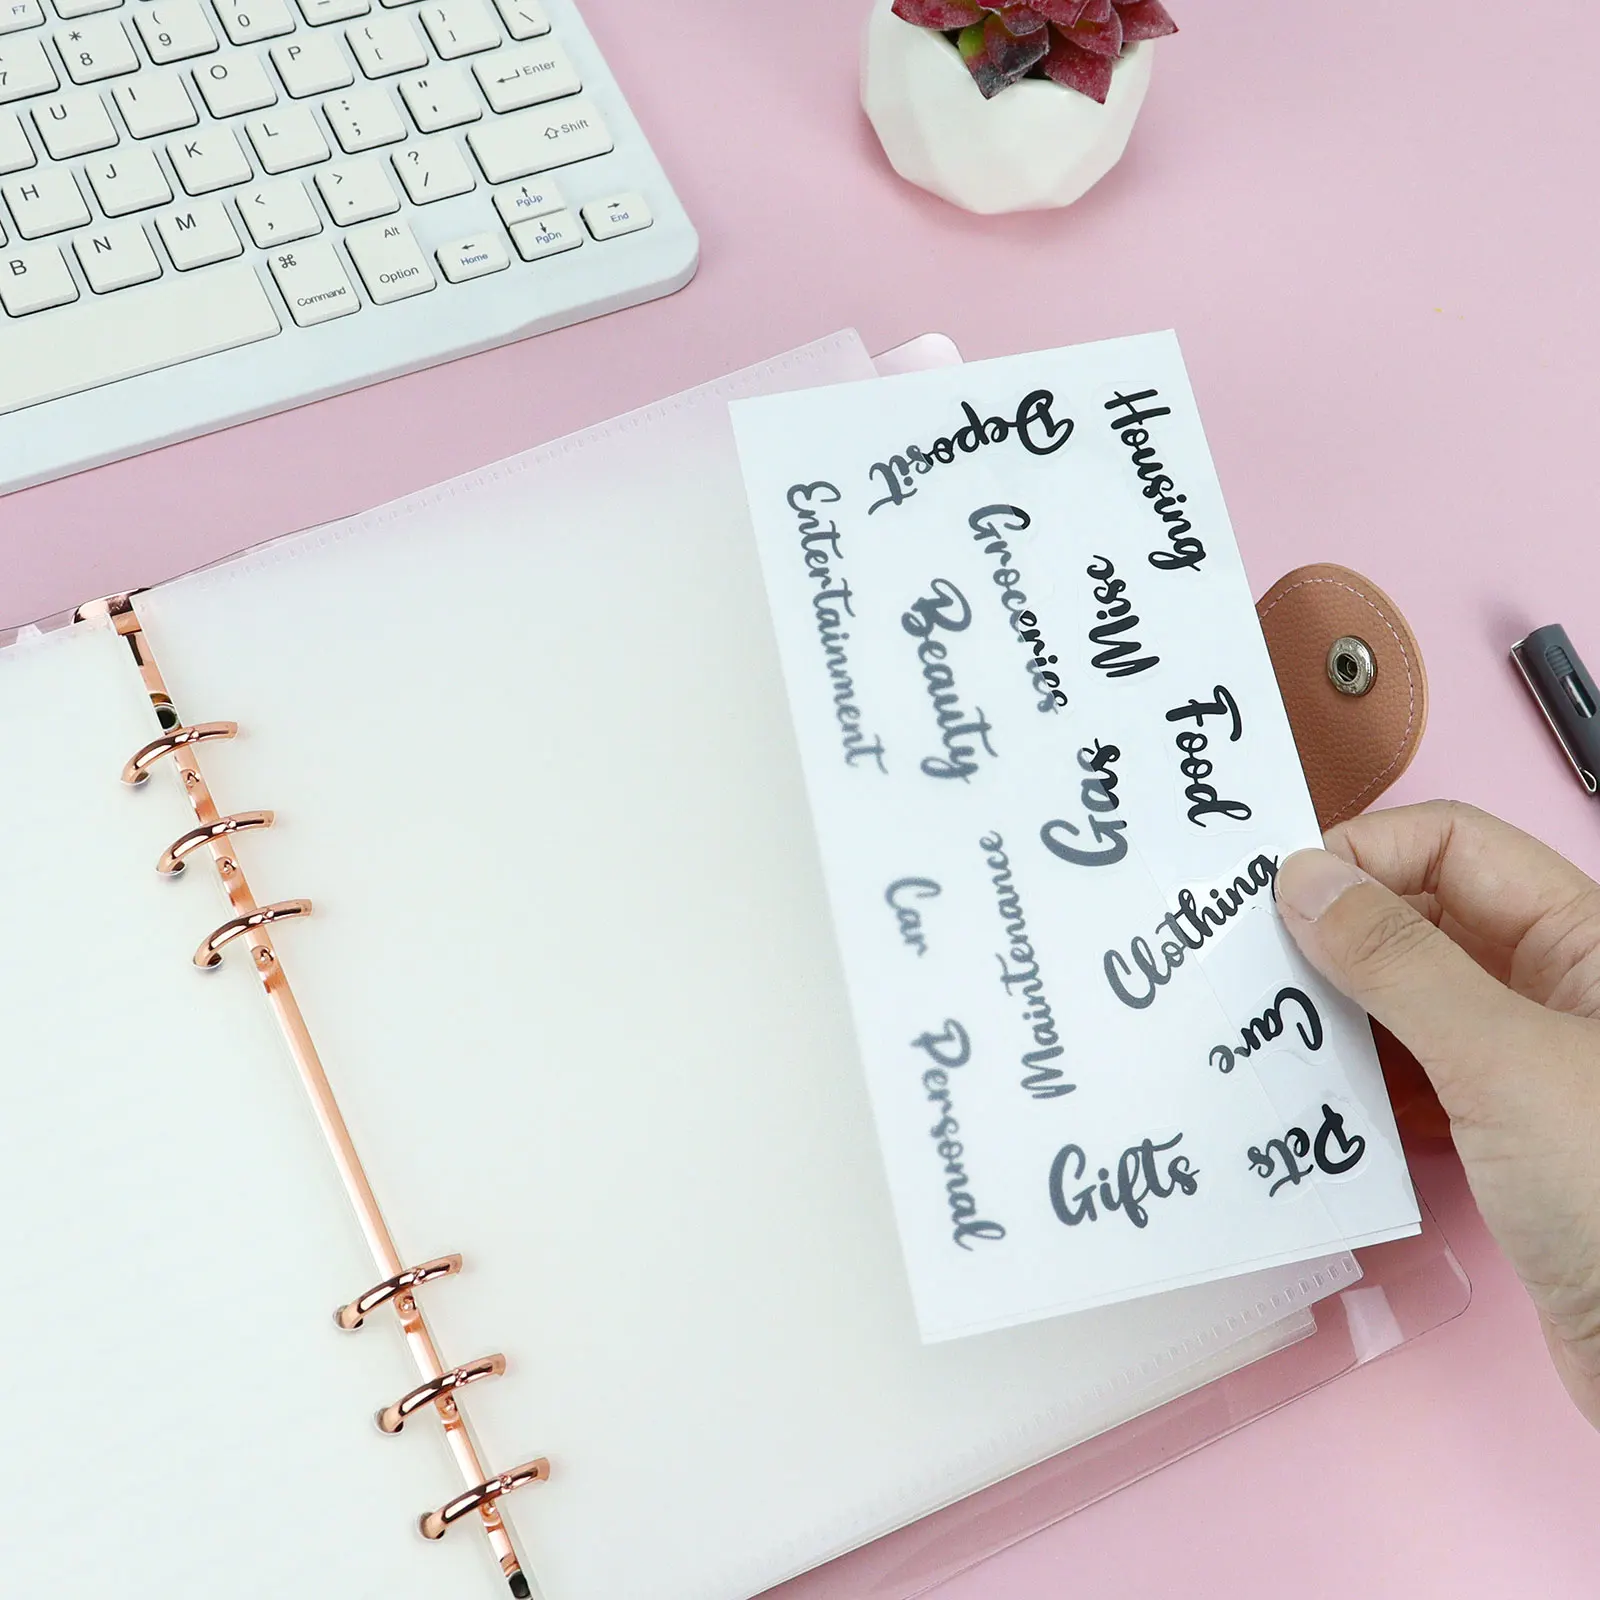 F7
7
* 8
( 9
) 0
{ [
} ]
U
I
O
P
Enter
H
J
K
L
: ;
" '
Shift
B
N
M
< ,
> .
? /
PgUp
⌘ Command
Alt Option
Home
PgDn
End
Housing
Deposit
Groceries
Misc
Entertainment
Beauty
Food
Gas
Clothing
Maintenance
Car
Care
Personal
Gifts
Pets